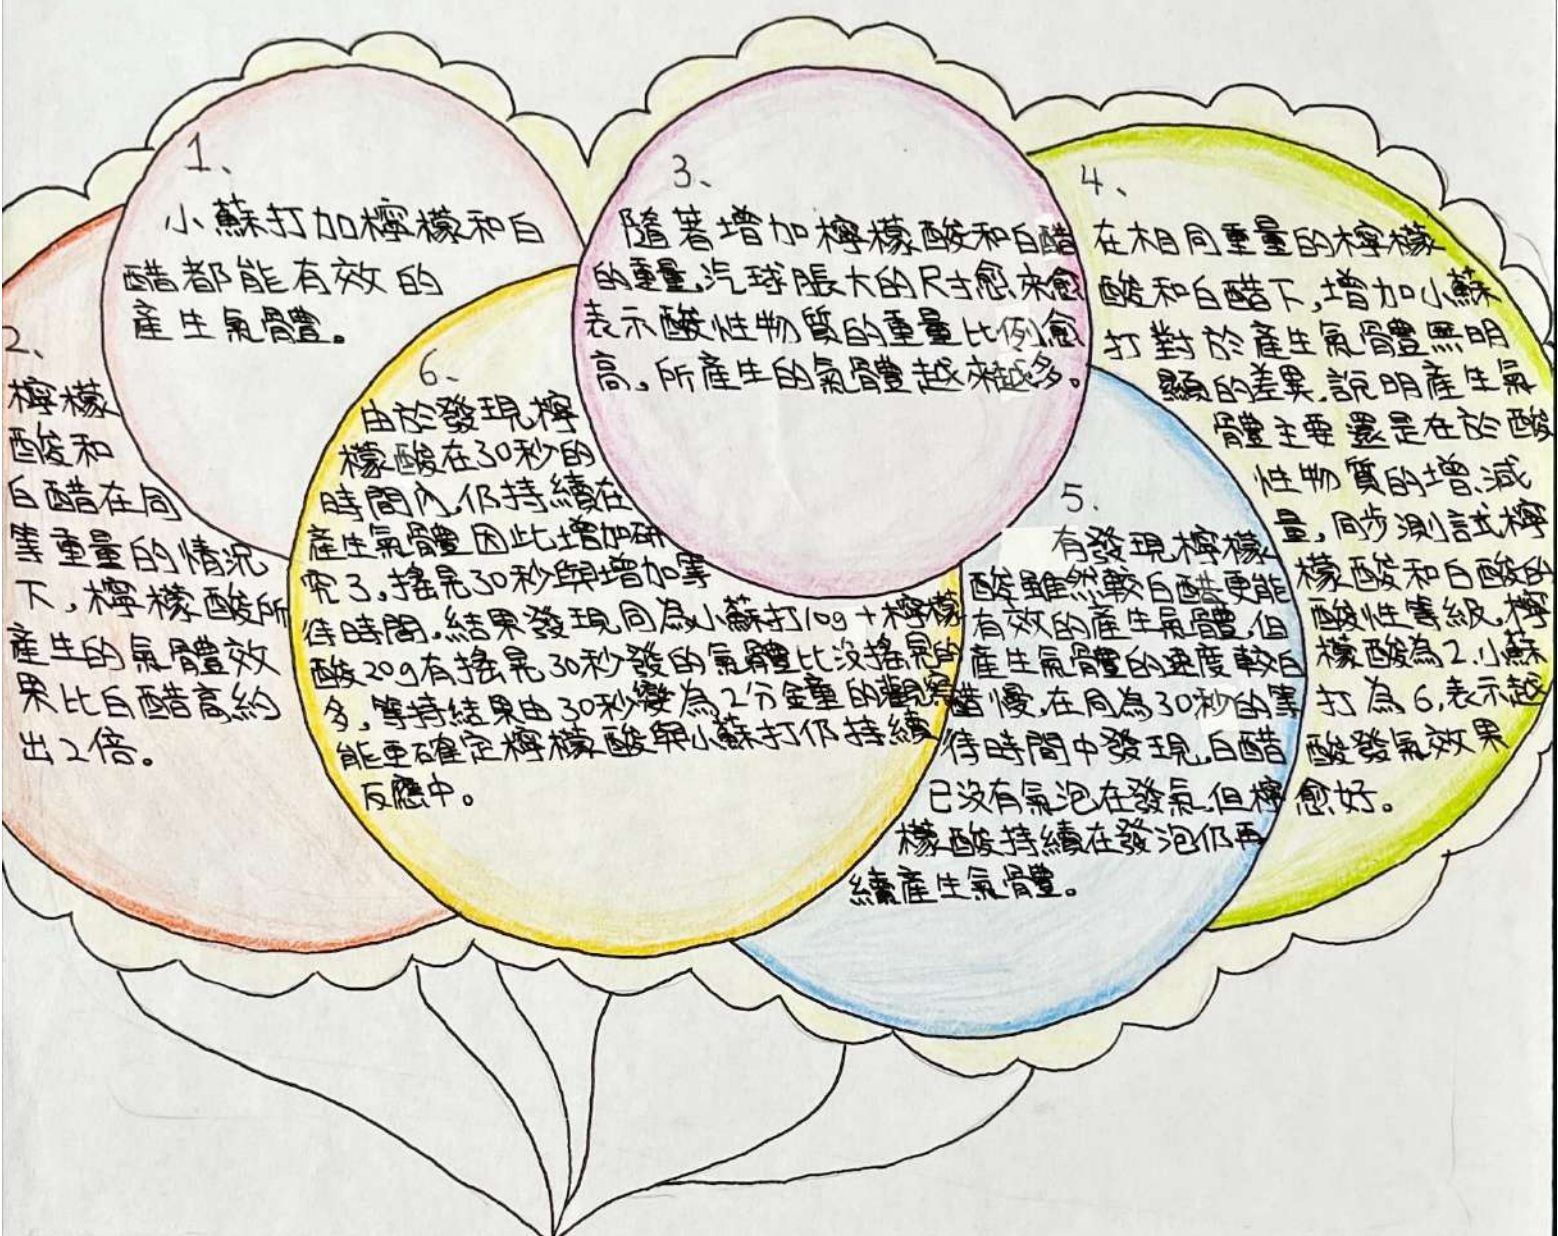 1、
小蘇打加檸檬和白
醋都能有效的
產生氣體。
2、
檸檬
酸和
白醋在同
等重量的情況
下,檸檬酸所
產生的氣體效
果比白醋高約
出2倍。
3、
隨著增加檸檬酸和白醋
的重量,汽球脹大的尺寸愈來愈
表示酸性物質的重量比例愈
高,所產生的氣體越來越多。
4、
在相同重量的檸檬
酸和白醋下,增加小蘇
打對於產生氣體無明
顯的差異,說明產生氣
體主要還是在於酸
性物質的增減
量,同步測試檸
檬酸和白酸的
酸性等級,檸
檬酸為2,小蘇
打為6,表示越
酸發氣效果
愈好。
5、
有發現檸檬
酸雖然較白醋更能
有效的產生氣體,但
產生氣體的速度較白
醋慢,在同為30秒的等
待時間中發現,白醋
已沒有氣泡在發氣,但檸
檬酸持續在發泡仍再
續產生氣體。
6、
由於發現檸
檬酸在30秒的
時間內,仍持續在
產生氣體因此增加研
究了,搖晃30秒與增加等
待時間,結果發現同為小蘇打10g+檸檬
酸20g有搖晃30秒發的氣體比沒搖晃的
多,等待結果由30秒變為2分鐘的觀察
能更確定檸檬酸與小蘇打仍持續
反應中。